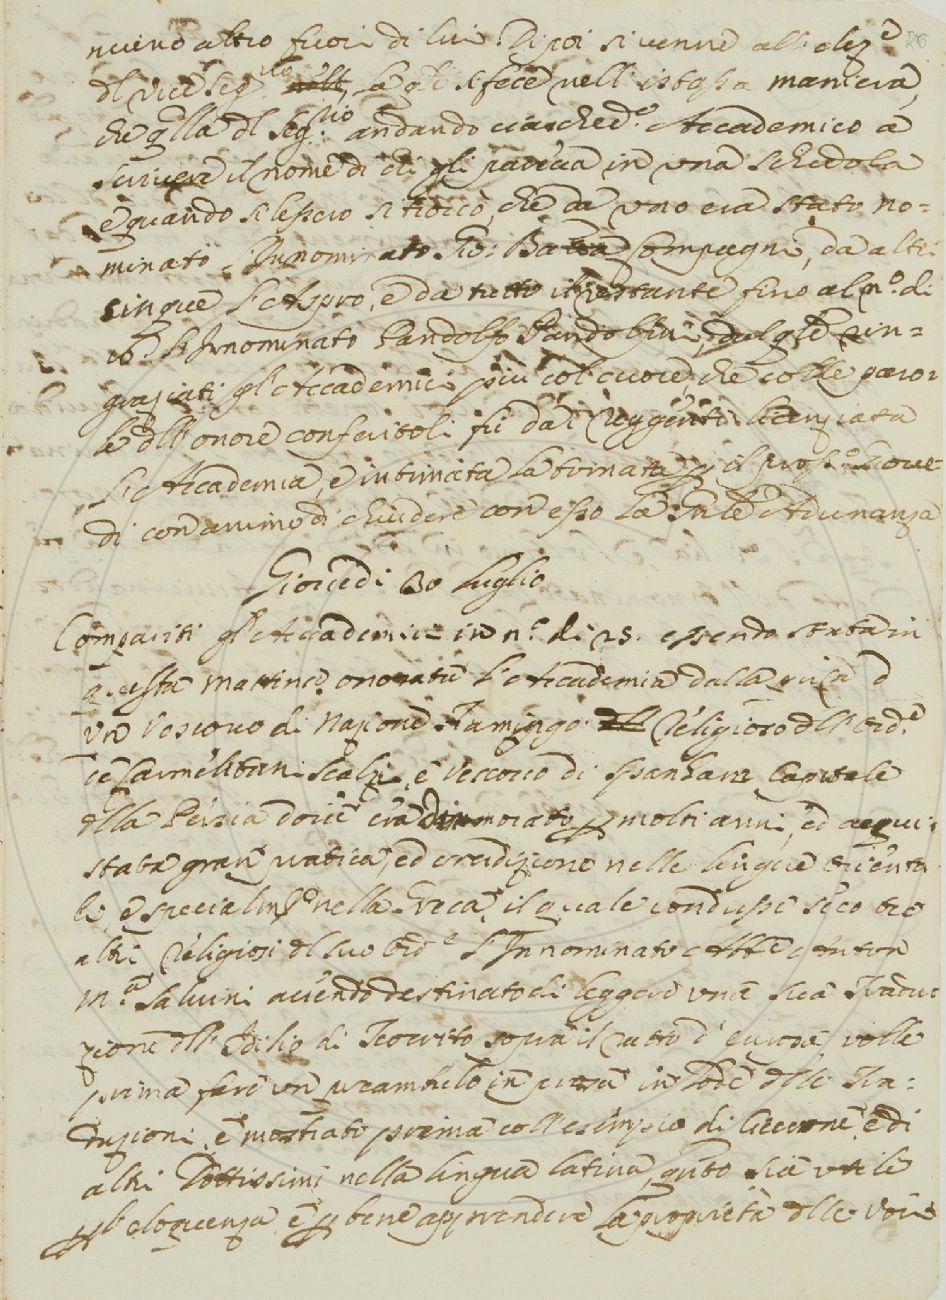 nuino altro fuori di lui. Dipoi si venne all'elez.e 26
d'l Vice Seg.rio la q.le si fece nell'istessa maniera,
che q.lla d'l Seg.rio andando ciasched.o Accademico a
scrivere il nome di chi gli pareva in una schedola
e quando si lessero si trovò, che da uno era stato no=
minato l'Innominato Gio: Bat̃a Compagni, da altri
cinque l'Aspro, e da tutto il restante fino al n.o di
L'Innominato Pandolfo Pandolfini, dal q.le rin=
graziati gl'Accademici più col cuore che colle paro=
le d'll'onore conferitoli fù dal Reggente licenziata
l'Accademia, e intimata la tornata p il pross.o Giove=
di con animo di chiudere con esso la p̃nte Adunanza
Giovedi 30 Luglio
Compariti gl'Accademici in n.o di 25. essendo stata in
questa mattina onorata l'Accademia dalla visita d
un Vescovo di Nazione Fiamingo Religioso d'll'Ord.e
de Carmelitani Scalzi, e Vescovo di Spanhan Capitale
d'lla Persia dove era dimorato p molti anni, ed acqui=
stata gran pratica, ed erudizione nelle lingue orienta
li, e specialm.te nella Greca, il quale condusse seco tre
altri Religiosi d'l suo Ord.e L'Innominato Abb.e Anton
M.a Salvini avendo destinato di leggere una sua Tradu
zione d'll'Idilio di Teocrito sopra il ratto d'Europa volle
prima fare un preambulo in prosa in lode d'lle Tra=
duzioni, e mostrato prima coll'esempio di Cicerone, e di
altri Dottissimi nella lingua latina, quto sia utile
p l'eloquenza, e p bene apprendere la proprietà d'lle voci